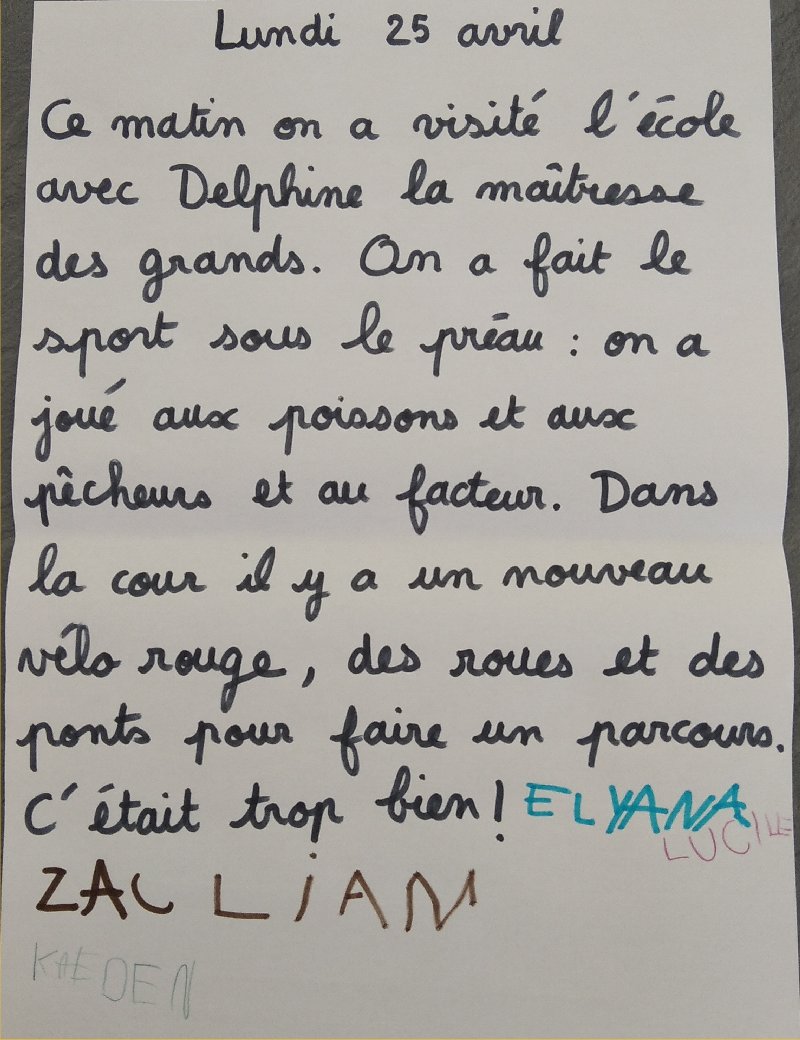 Lundi 25 avril
Ce matin on a visité l'école
avec Delphine la maîtresse
des grands. On a fait le
sport sous le préau : on a
joué aux poissons et aux
pêcheurs et au facteur. Dans
la cour il y a un nouveau
vélo rouge, des roues et des
ponts pour faire un parcours.
C'était trop bien! ELYANA
LUCILE
ZAC LiAM
KAEDEN